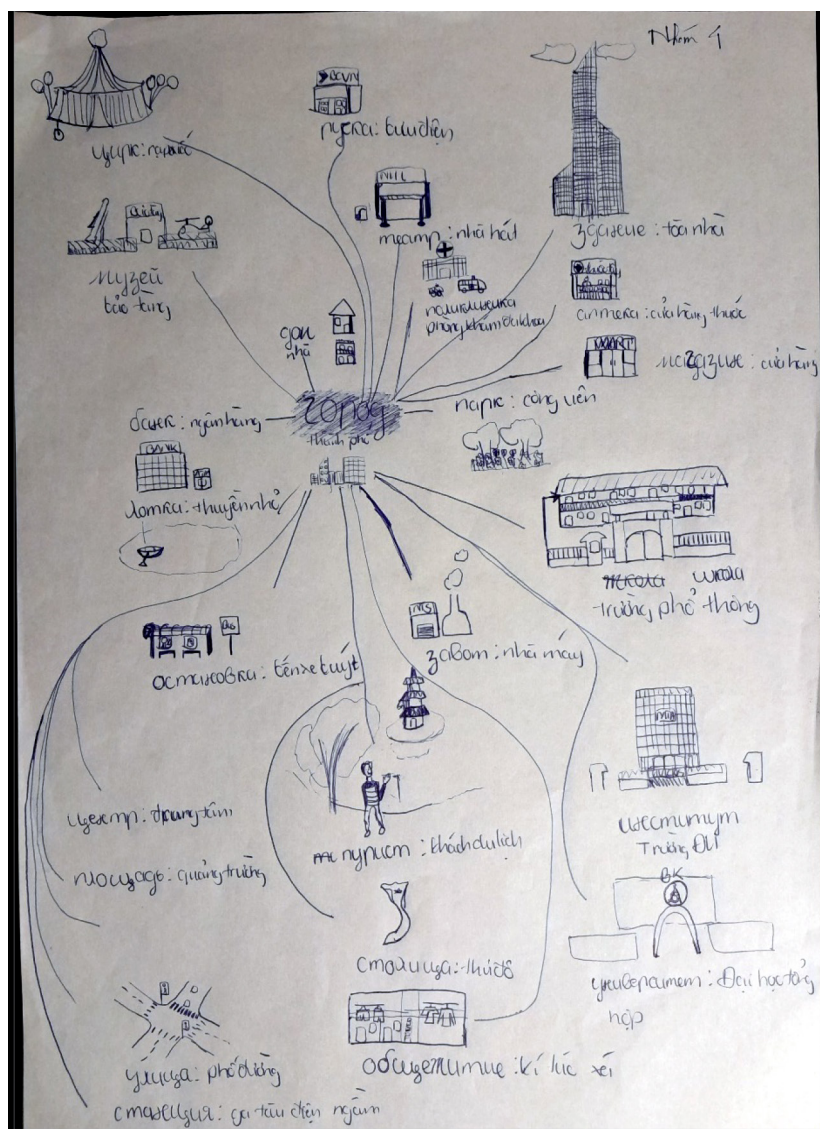 Nhóm 1
цирк: rạp xiếc
музей
bảo tàng
театр: nhà hát
здание: tòa nhà
поликлиника
phòng khám đa khoa
аптека: cửa hàng thuốc
MART
магазине: cửa hàng
дом
nhà
город
thành phố
парк: công viên
банк: ngân hàng
BANK
лотка: thuyền nhỏ
школа
trường phổ thông
BUS
остановка: bến xe buýt
завот: nhà máy
центр: trung tâm
площадь: quảng trường
турист: khách du lịch
институт
Trường ĐH
BK
столица: thủ đô
университет: Đại học tổng
hợp
улица: phố đường
общежитие: kí túc xá
станция: ga tàu điện ngầm